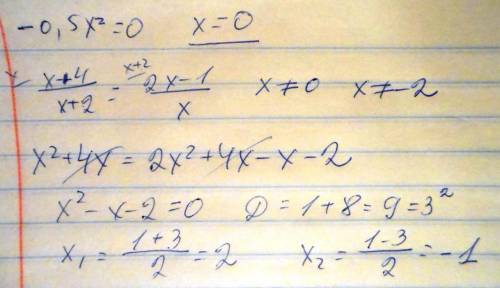 -0,5x²=0 x=0
x+4/x+2 = x+2 2x-1/x x≠0 x≠-2
x²+4x = 2x²+4x-x-2
x²-x-2=0 D=1+8=9=3²
x₁ = 1+3/2 = 2 x₂ = 1-3/2 = -1